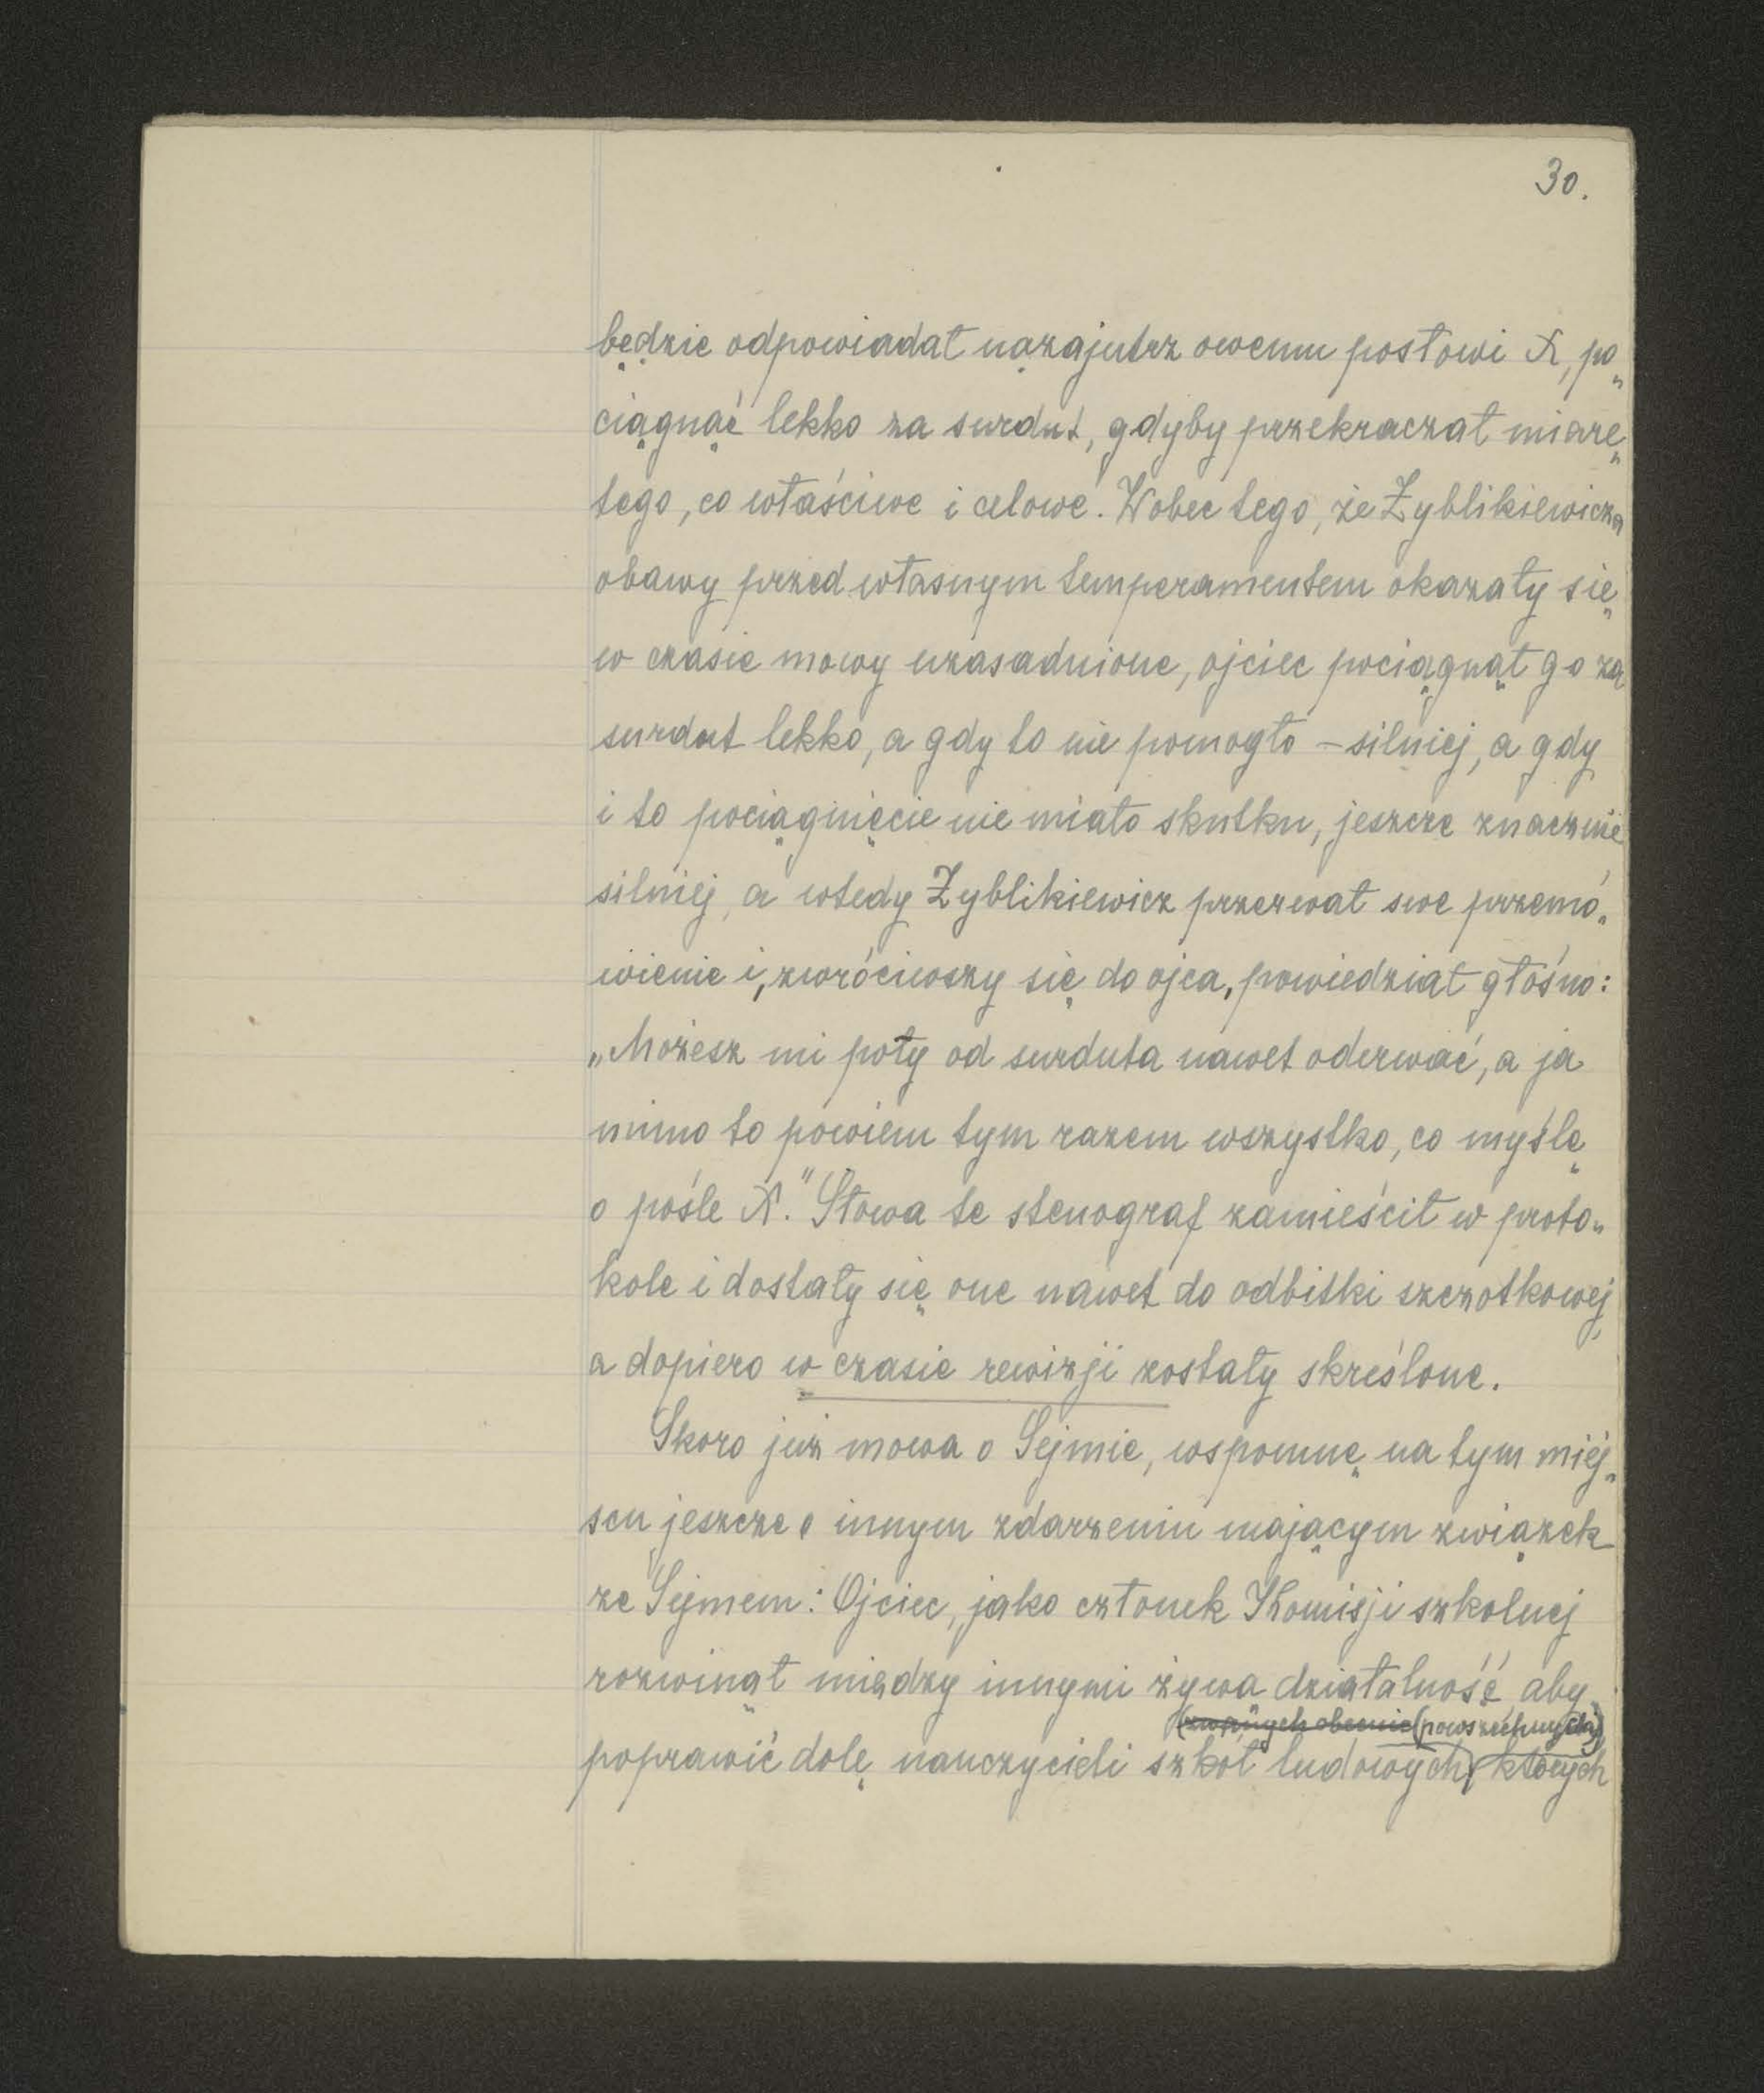 30.
będzie odpowiadał nazajutrz owemu posłowi X, po„
ciągnąć lekko za surdut, gdyby przekraczał miarę
tego, co właściwe i celowe. Wobec tego, że Zyblikiewicza
obawy przed własnym temperamentem okazały się
w czasie mowy uzasadnione, ojciec pociągnął go za
surdut lekko, a gdy to nie pomogło – silniej, a gdy
i to pociągnięcie nie miało skutku, jeszcze znacznie
silniej, a wtedy Zyblikiewicz przerwał swe przemó„
wienie i, zwróciwszy się do ojca, powiedział głośno:
„Możesz mi poły od surduta nawet oderwać, a ja
mimo to powiem tym razem wszystko, co myślę
o pośle X." Słowa te stenograf zamieścił w proto„
kole i dostały się one nawet do odbitki szczotkowej,
a dopiero w czasie rewizji zostały skreślone.
Skoro już mowa o Sejmie, wspomnę na tym miej„
scu jeszcze o innym zdarzeniu mającym związek
ze Sejmem: Ojciec, jako członek Komisji szkolnej
rozwinął między innymi żywą działalność, aby
(zwanych obecnie (powszechnych)
poprawić dolę nauczycieli szkół ludowych, których